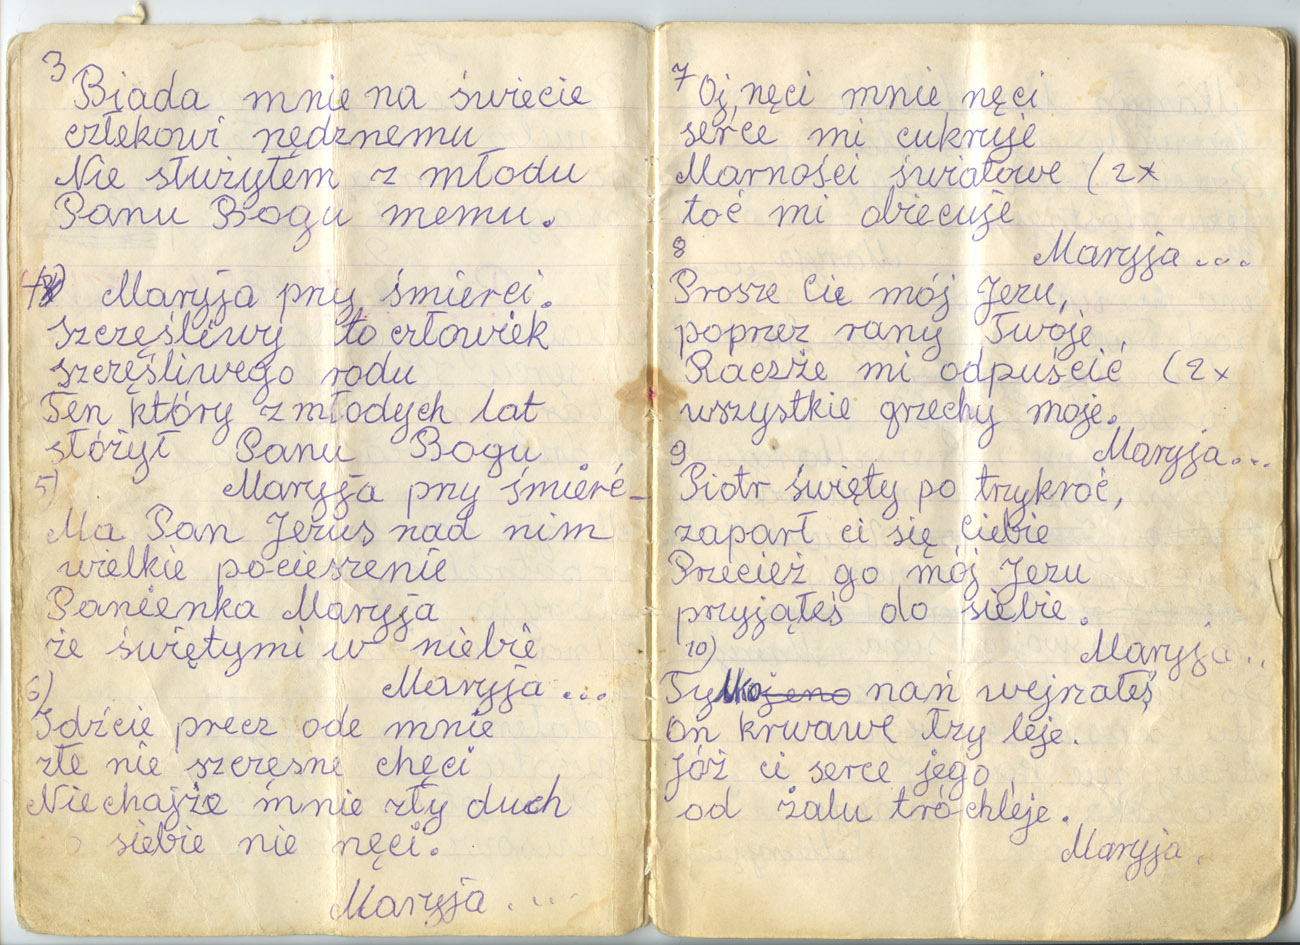 3
Bjada mnie na świecie
człekowi nędznemu
Nie służyłem z młodu
Panu Bogu memu.
Maryja pry śmierci.
4)
Szczęśliwy to człowiek
szczęśliwego rodu
Ten który z młodych lat
stóżył Panu Bogu.
Maryja pry śmierć-
5)
Ma Pan Jezus nad nim
wielkie pocieszenie
Panienka Maryja
że świętymi w niebie
Maryja ...
6)
Idźcie precz ode mnie
złe nie szczęsne chęci
Niechajże mnie zły duch
siebie nie nęci.
Maryja ....
7 Oj, nęci mnie nęci
serce mi cukruje
Marności światowe (2x
toć mi dziecuje
Maryja ...
8
Prosze Cie mój Jezu,
poprzez rany Twoje,
Raczże mi odpuścić (2x
wszystkie grzechy moje.
Maryja...
9
Piotr święty po trzykroć,
zaparł ci się Ciebie
Przecież go mój Jezu
przyjąłeś do siebie.
Maryja..
10)
Tylko nań wejrzałeś
On krwawe łzy leje.
Jóż ci serce jego,
od żalu tróchleje.
Maryja.